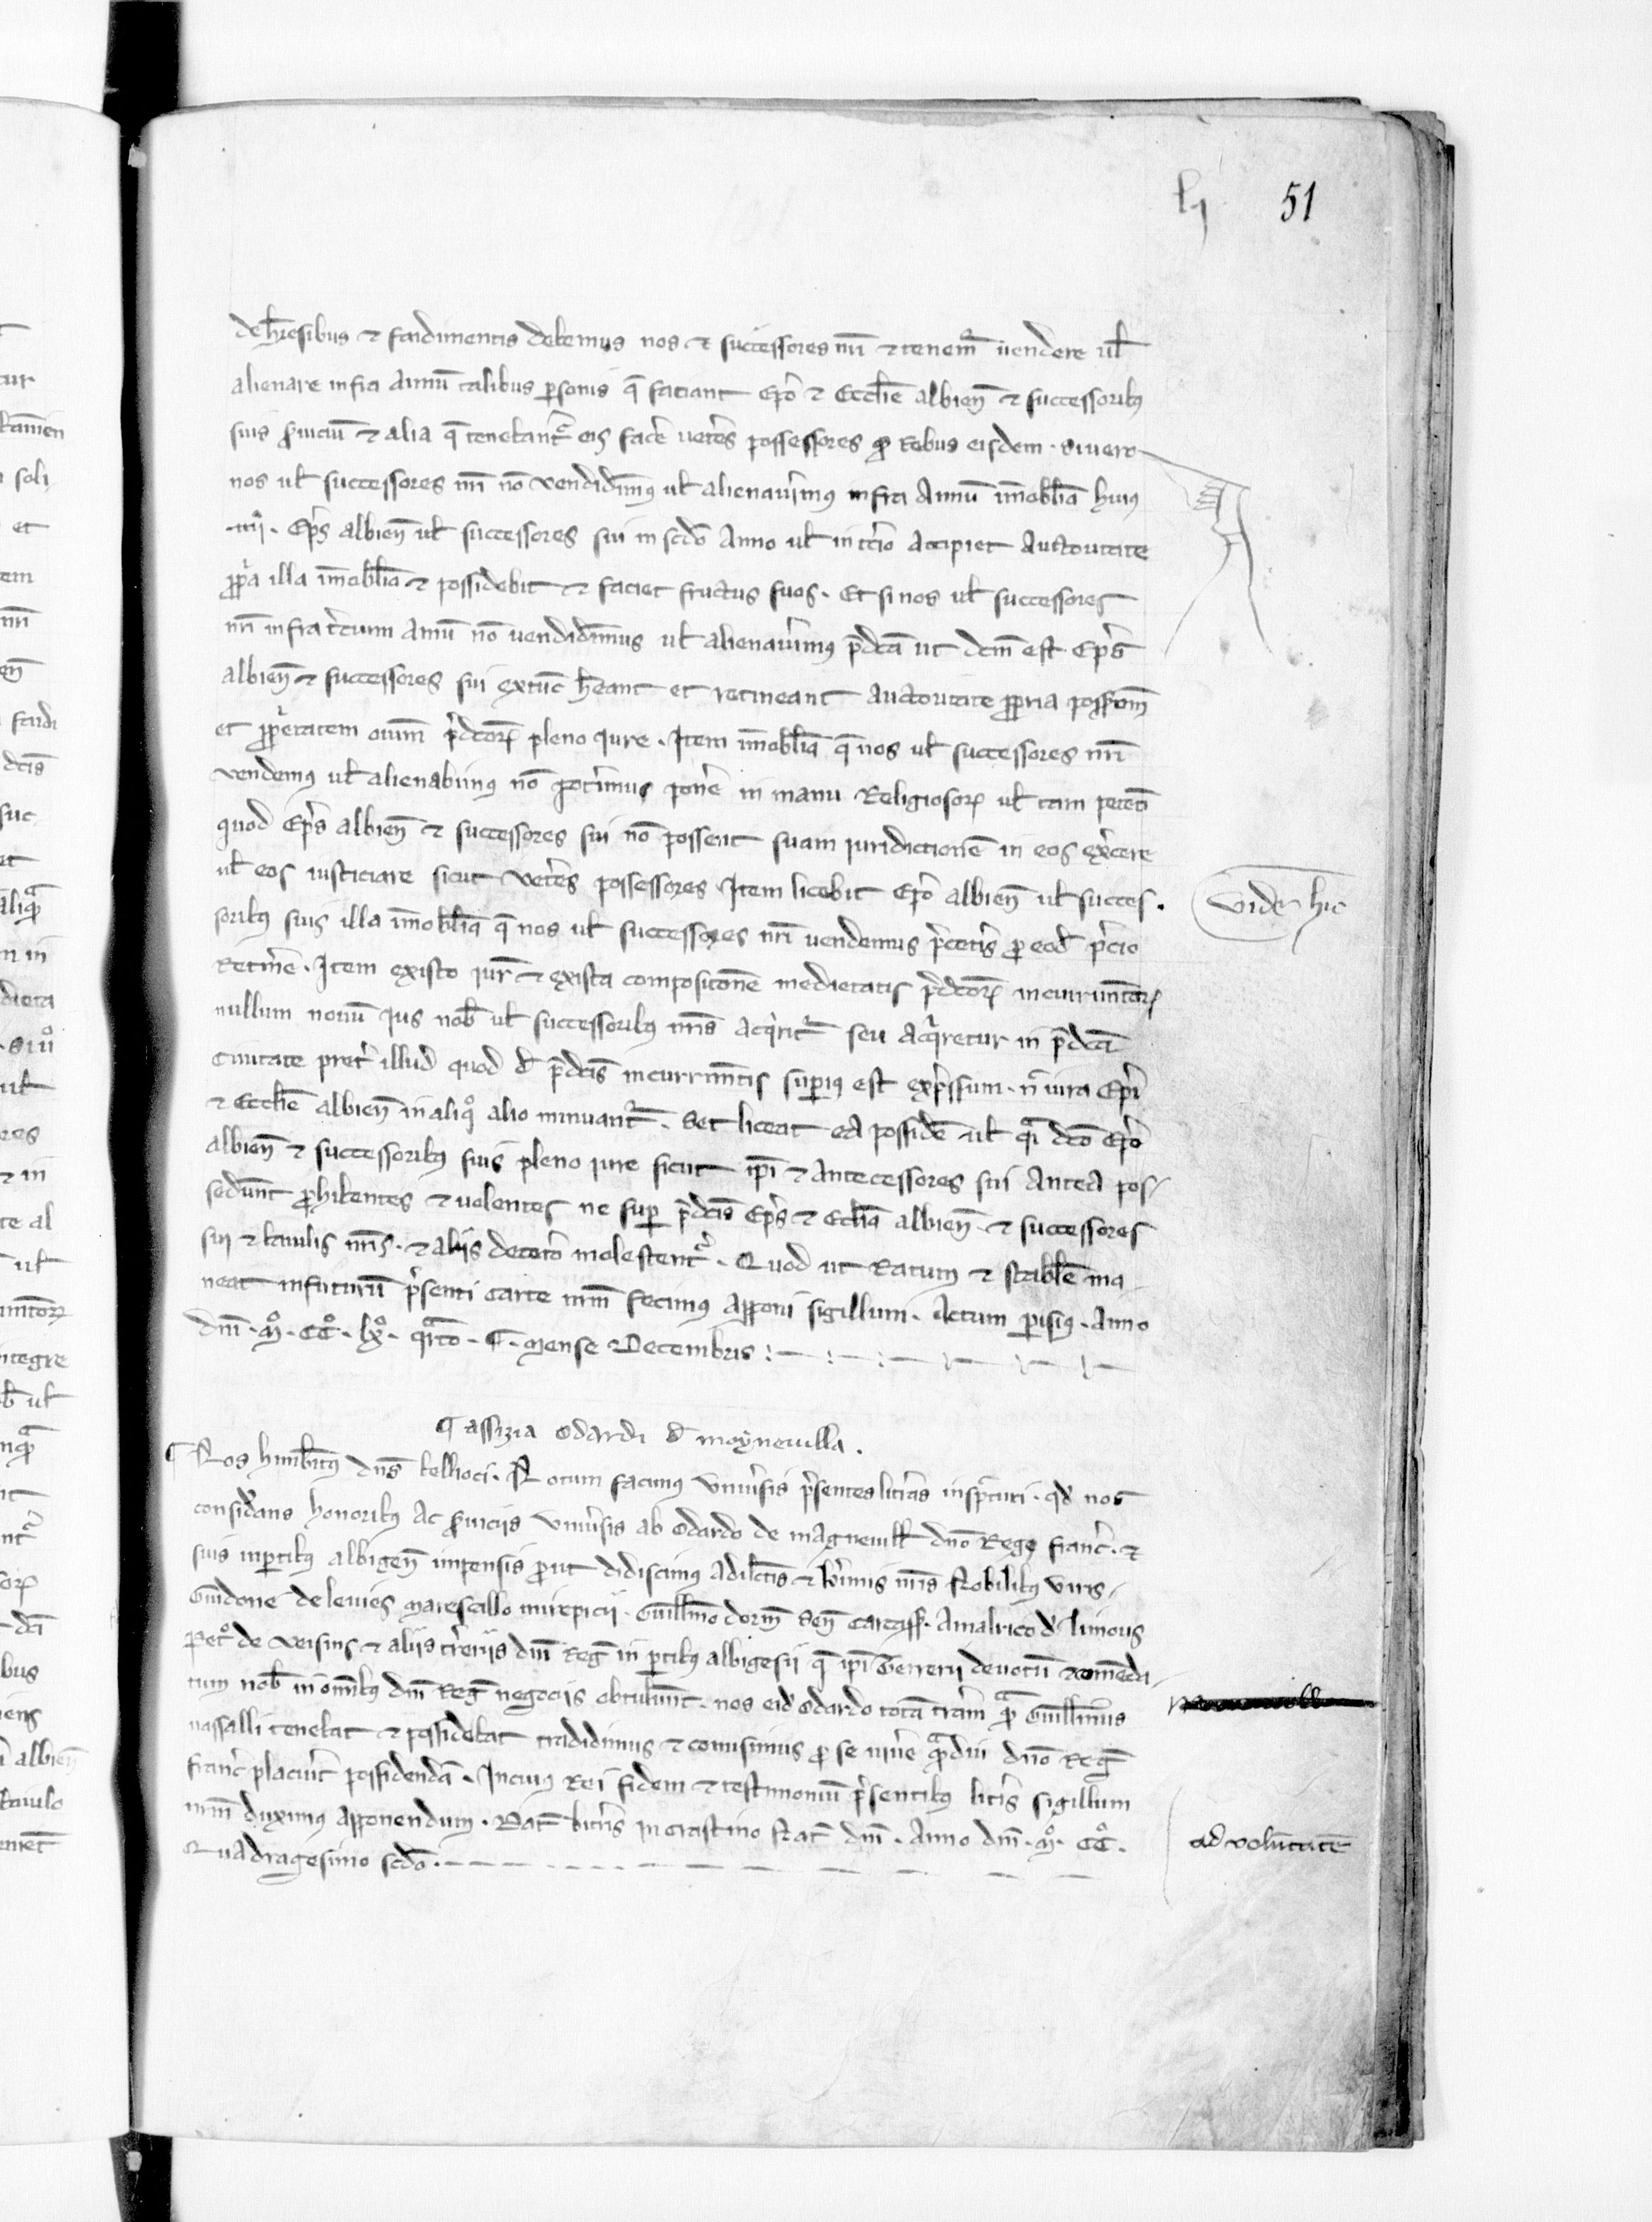 lj 51
de heresibus ⁊ faidimentis debemus nos ⁊ successores nr̃i ⁊ tenemr̃ uendere ul̃
alienare infra Annũ talibus personis q̃ faciant Ep̃o ⁊ Eccl̃ie albieñ ⁊ successoribꝰ
suis ẜuiciũ ⁊ alia q̃ tenebant᷑ eis fac̃e uet̃es possessores ꝓ Rebus eisdem · Si uero
nos ul̃ successores nr̃i nõ vendid̃imꝰ ul̃ alienau̾imus infra Annũ imobilia huius
·mͥ· Ep̃s albieñ ul̃ successores sui in scd̃o Anno ul̃ in t̾cio Accipiet Auctoritate
ꝓp̾a illa imobilia ⁊ possidebit ⁊ faciet fructus suos · Et si nos ul̃ successores
nr̃i infra t̾cium Annũ nõ uendid̃imus ul̃ alienau̾imus p̃dcã ut dcm̃ est Ep̃s
albieñ ⁊ successores sui extũc h̃eant et retineant Auctoritate ꝓpria poss̃iom̃
et ꝓp̾etatem oĩum p̃dcoꝝ pleno iure · Item imobilia q̃ nos ul̃ successores nr̃i
vendemꝰ ul̃ alienabimꝰ nõ pot̾imus pon̾e in manu Religiosoꝝ ul̃ tam potẽt
quod Ep̃s albieñ ⁊ successores sui nõ possent suam iuridictionẽ in eos ex̾cere
ul̃ eos iusticiare sicut vet̾es possessores Item licebit Ep̃o albieñ ul̃ succes·
soribꝰ suis illa imobilia q̃ nos ul̃ successores nr̃i vendemus p̾cet̾is ꝓ eod̃ p̾cio
Retin̾e · Item ex isto iur̃ ⁊ ex ista compositionẽ medietatis p̃dcoꝝ incurrimẽtoꝝ
nullum nouũ Ius nob̃ ul̃ successoribꝰ nr̃is Acq̾rit᷑ seu Acq̾retur in p̃dcã
Ciuitate pret̾ illud quod d̃ p̃dcĩs incurrimẽtis sup̾ius est exp̾ssum · n̾ iura Ep̃i
⁊ Eccl̃ie albieñ in aliqͦ alio minuant᷑ · Set liceat ea posside̾ ul̃ q̾i dc̃o Ep̃o
albieñ ⁊ successoribꝰ suis pleno iure sicut ip̃i ⁊ Antecessores sui Antea pos-
sed̾unt ꝓhibentes ⁊ uolentes ne super p̃dcĩs Ep̃s ⁊ Eccl̃ia albieñ ⁊ successores
sui ⁊ baiulis nr̃is · ⁊ aliis decet̾o molestent᷑ · Quod ut Ratum ⁊ stabile ma-
neat in futurũ p̾senti carte nr̃m fecimus apponi sigillum · Actum parisiꝰ · Anno
dm̃ · Mͦ · CCͦ · lxͦ · qᷓrto · C · Mense Decembris :
¶ assizia Odardi d̾ moyneuilla ·
¶ Nos himb̾tꝰ dñs bellioci · Notum facimus vniu̾sis p̾sentes litt̾as insp̾cturi · qd̾ nos
consid̾ans honoribꝰ ac ẜuiciis vniu̾sis ab Odardo de magneuill̃ dño Rege franc̃ · ⁊
suis in ꝑtibꝰ albigeñ impensis ꝓut didiscimus a dil̃ctis ⁊ k̃rimis nr̃is Nobilibꝰ viris
Guidone de leuies Marescallo mirepicii · Guill̃mo dorm̃ Señ Carcass̃ · Amalrico d̾ limous
Petͦ de veisins ⁊ aliis t̾reriis dm̃ Reg̃ in ꝑtibꝰ albigesii q̃ ip̃i Terrerii deuotũ ⁊ comẽda
tum nob̃ in om̃ibꝰ dm̃ Reg̃ negociis obtul̾unt · nos eid̾ Odardo totã tr̃am qᷓ Guill̃mus
uassalli tenebat ⁊ possidebat tradidimus ⁊ comisimus ꝓ se uiu̾e qᷓdiu dño Reg̃
franc̃ placu̾it possidendã · In cuius Rei fidem ⁊ testimoniũ p̾sentibꝰ litt̾is sigillum
nr̃m duximus apponendum · Dat̃ bitr̾is in Crastino Nat̃ dm̃ · Anno dm̃ · Mͦ · CCͦ ·
Quadragesimo scd̃o ·
vide hic
ad volũtatẽ